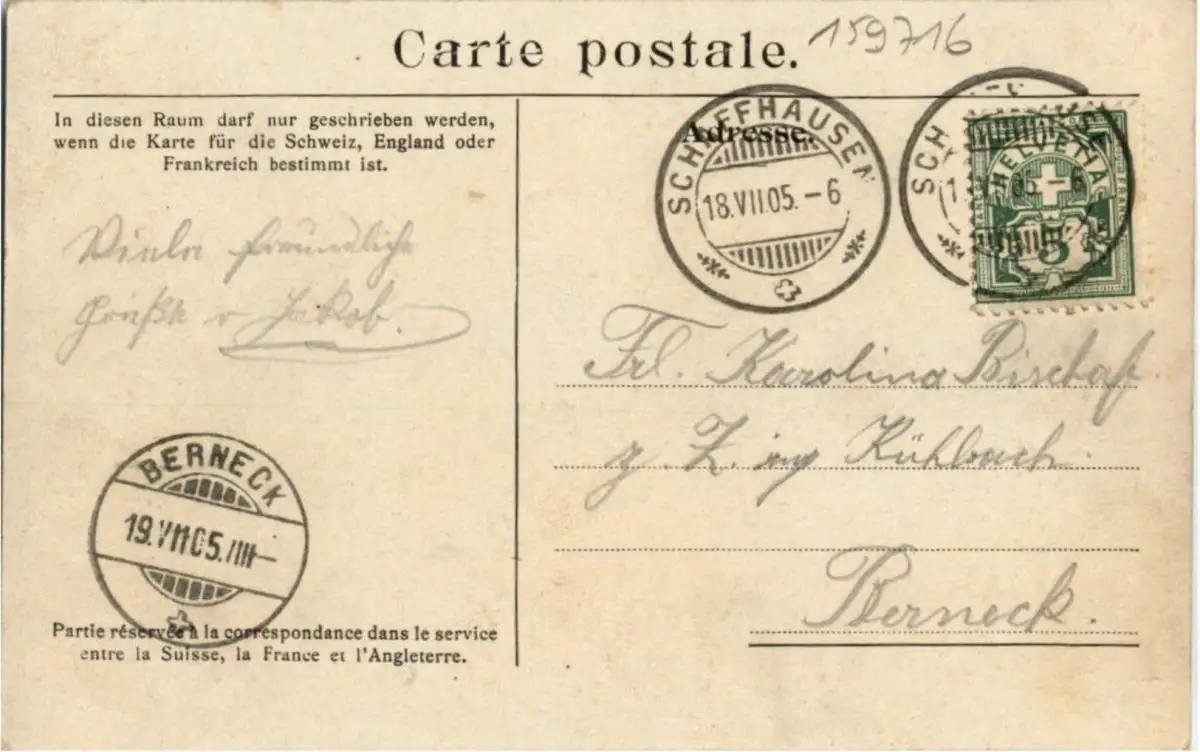 Carte postale.
159716
In diesen Raum darf nur geschrieben werden,
wenn die Karte für die Schweiz, England oder
Frankreich bestimmt ist.
Adresse.
SCHAFFHAUSEN
18.VII.05.-6
HELVETIA
5
Viele freundliche
Grüße v Jakob.
Frl. Karolina Bischof
z. Z. Kühlbach.
Berneck.
BERNECK
19.VII.05.
Partie réservée à la correspondance dans le service
entre la Suisse, la France et l'Angleterre.